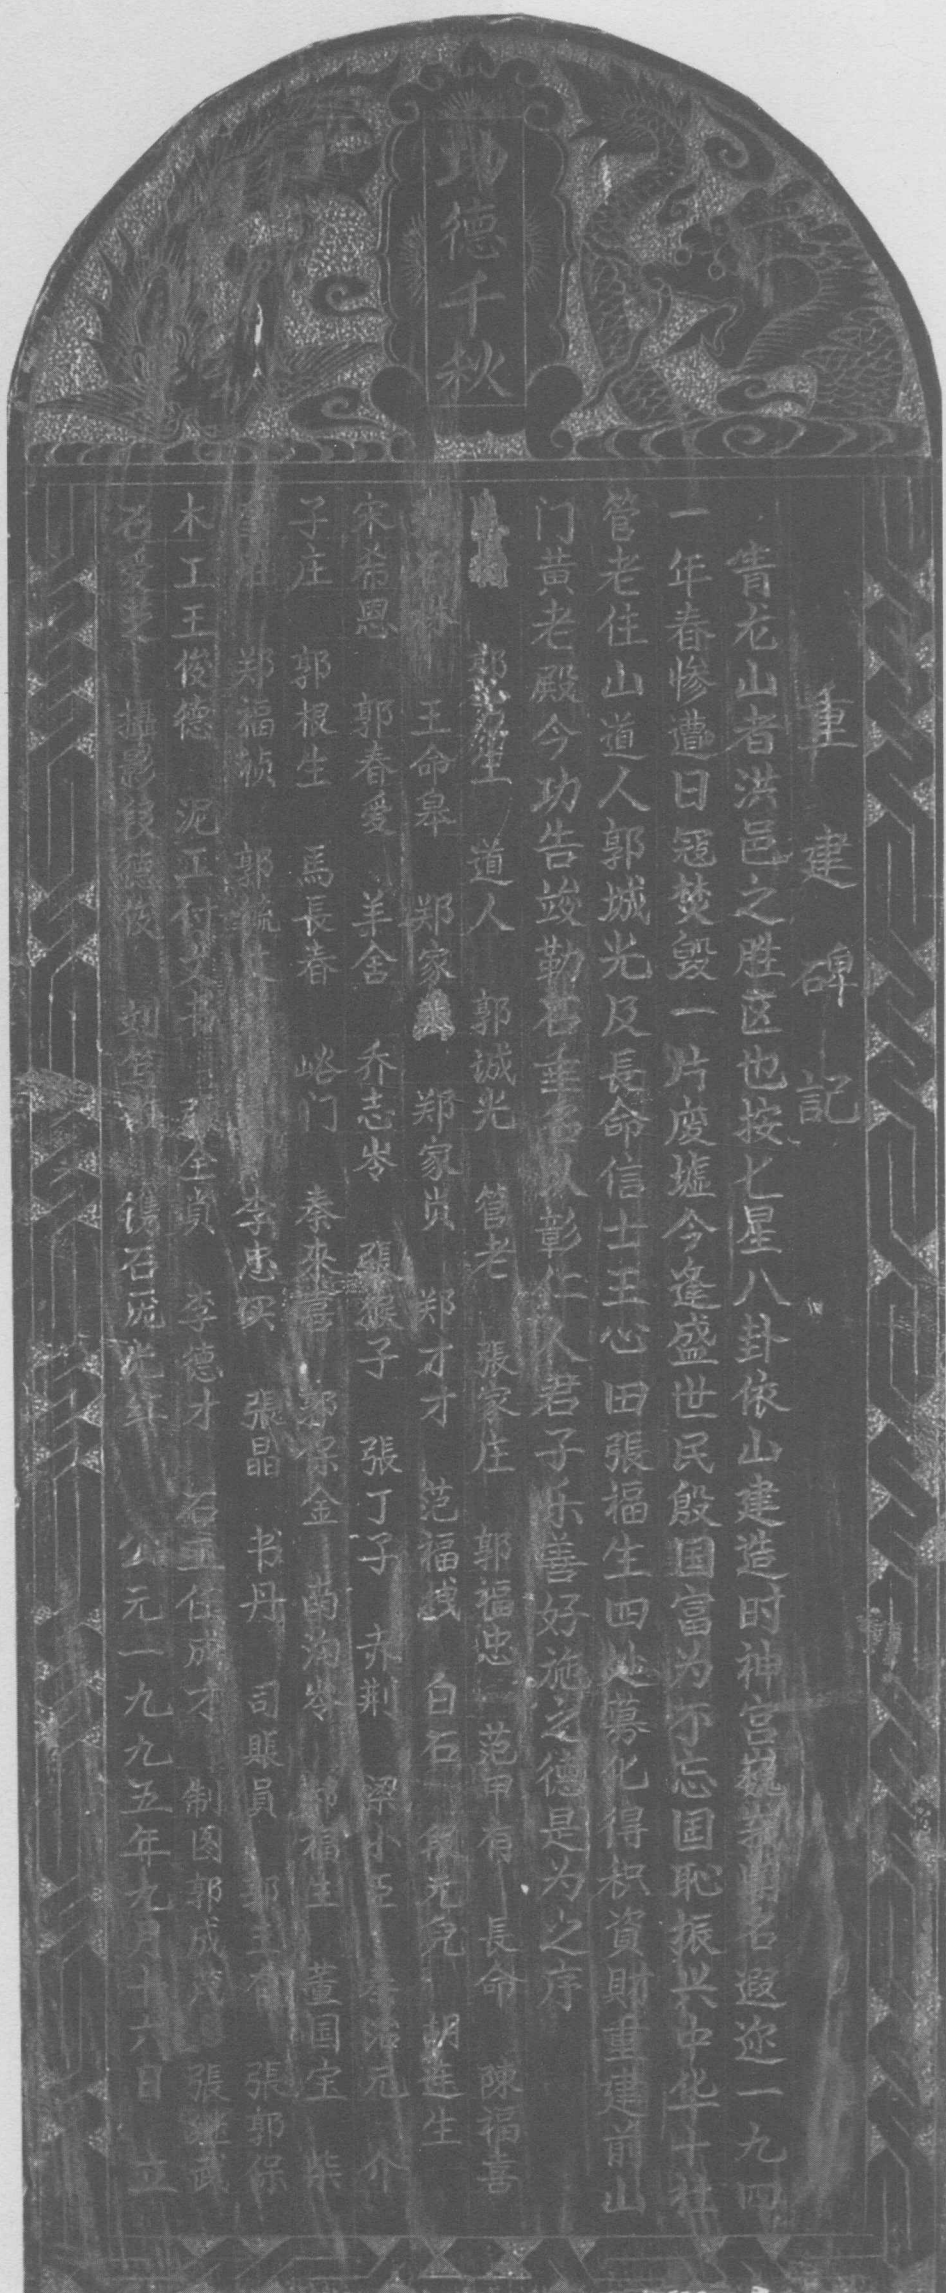 功德千秋
重建碑記
青龙山者洪邑之胜区也按七星八卦依山建造时神宫巍峩闻名遐迩一九四
一年春惨遭日冠焚毁一片废墟今逢盛世民殷国富为不忘国恥振兴中华十社
管老住山道人郭城光及長命信士王心田張福生四处募化得积資財重建前山
门黄老殿今功告竣勒石垂名以彰仁人君子乐善好施之德是为之序
郭 道人 郭诚光 管老 張家庄 郭福忠 范甲有 長命 陳福喜
王命皋 郑家 郑家贵 郑才才 范福 白石 段元兒 胡连生
宋希恩 郭春愛 羊舍 乔志岺 張猴子 張丁子 赤荆 梁小臣 治元 介
子庄 郭根生 馬長春 峪门 秦來 郭保金 南沟岺 郭福生 董国宝 柴
郑福桢 郭 李忠 張晶 书丹 司賬員 郭主有 張郭保
木工王俊德 泥工付文 全貴 李德才 石工任成才 制图郭成茂 張继武
攝影段德俊 鐫石 年 公元一九九五年九月十六日 立